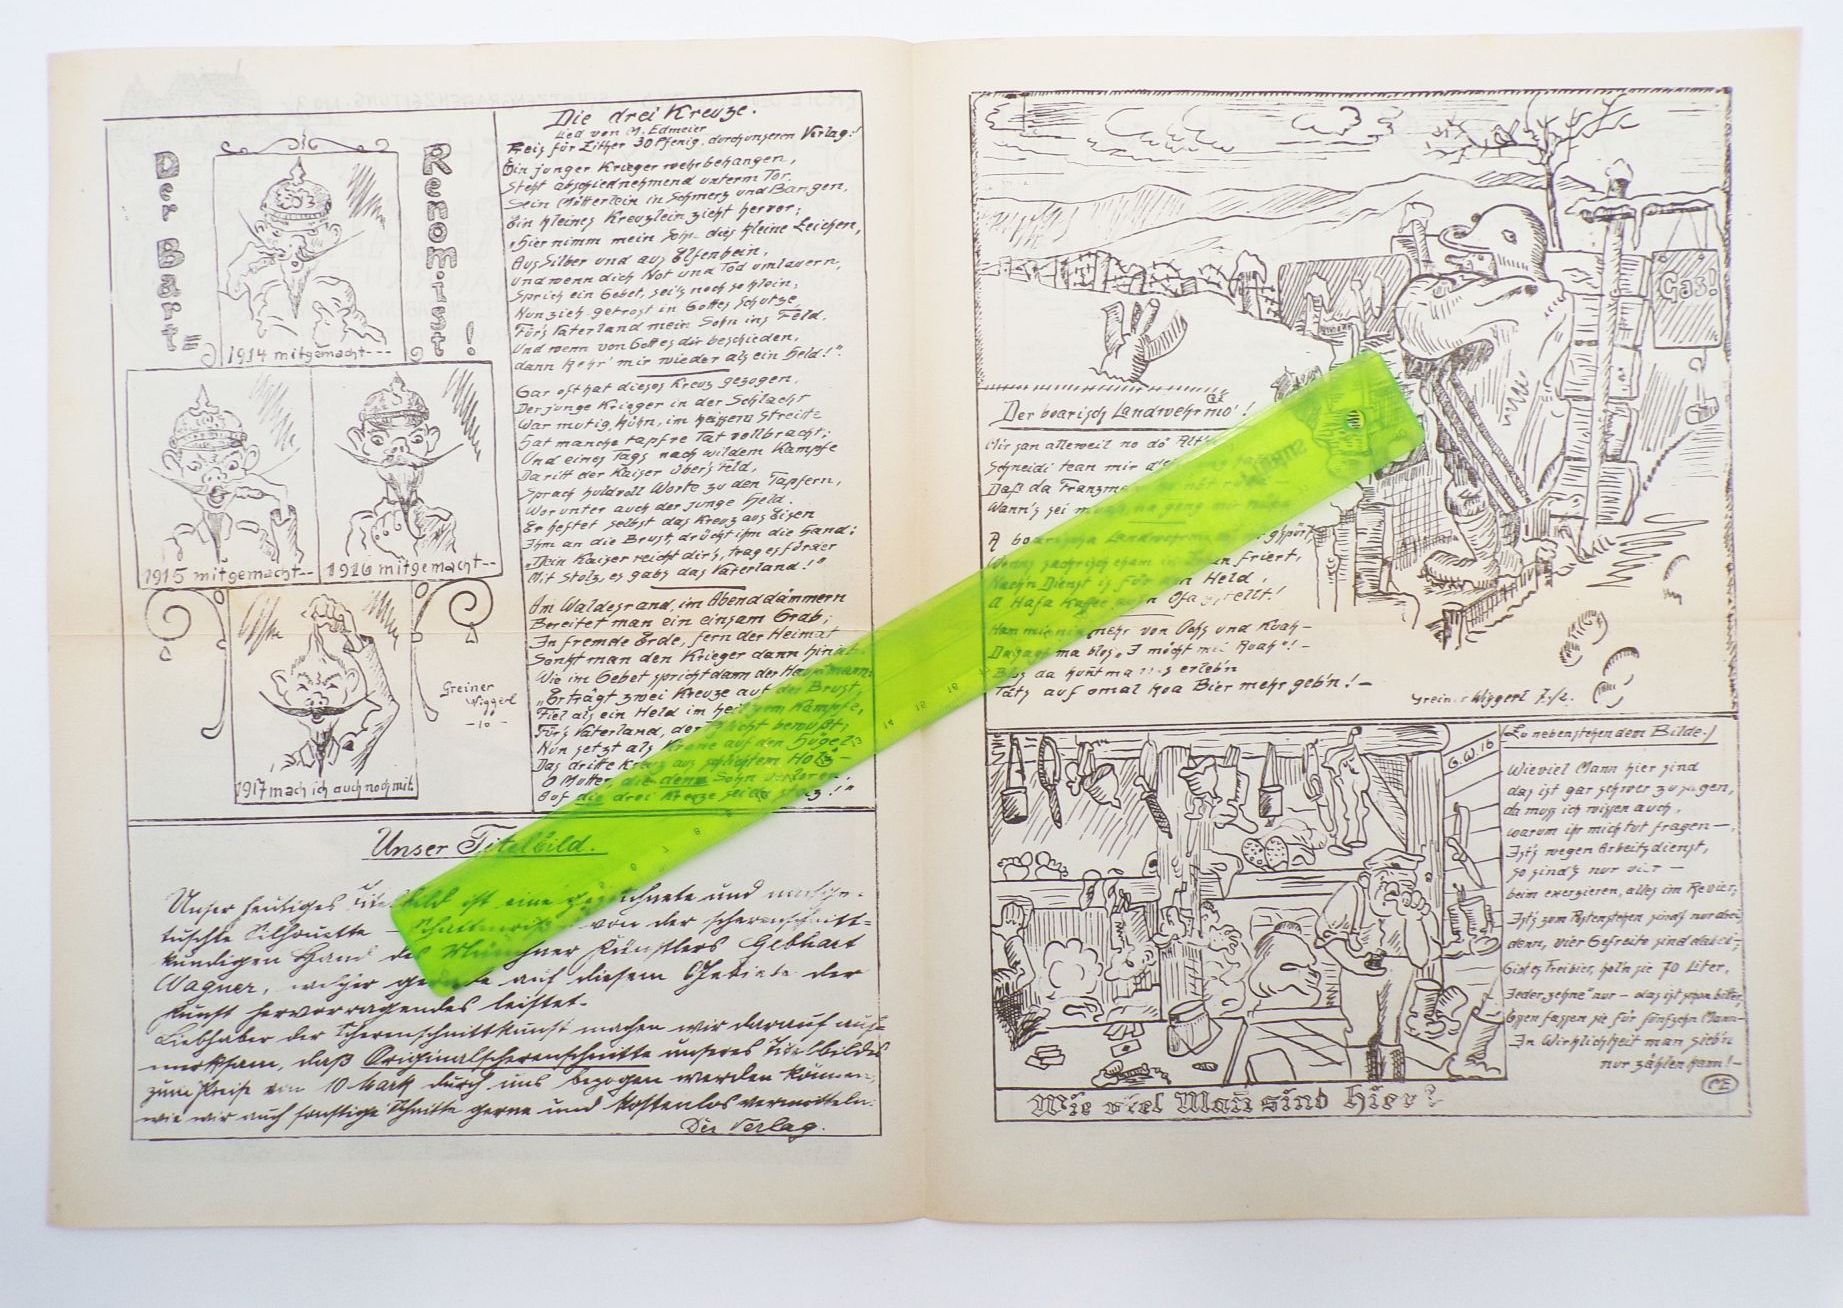 Der Bart=
Renomist!
1914 mitgemacht---
1915 mitgemacht--
1916 mitgemacht--
1917 mach ich auch noch mit.
Greiner
Wiggerl
-10-
Die drei Kreuze.
Lied von M. Edmeier
Preis für Zither 30 Pfenig. durch unseren Verlag!
Ein junger Krieger wehrbehangen,
Steht abschiednehmend unterm Tor.
Sein Mütterlein in Schmerz und Bangen,
Ein kleines Kreuzlein zieht hervor;
„Hier nimm mein Sohn dies kleine Zeichen,
Aus Silber und aus Elfenbein,
Und wenn dich Not und Tod umlauern,
Sprich ein Gebet, sei's noch so klein;
Nun zieh getrost in Gottes Schutze
Für's Vaterland mein Sohn ins Feld.
Und wenn von Gott es dir beschieden,
dann kehr' mir wieder als ein Held!".
Gar oft hat dieses Kreuz gezogen,
Der junge Krieger in der Schlacht
War mutig, kühn, im heissem Streite
Hat manche tapfre Tat vollbracht;
Und eines Tags nach wildem Kampfe
Da ritt der Kaiser über's Feld,
Sprach huldvoll Worte zu den Tapfern,
Worunter auch der junge Held.
Er heftet selbst das Kreuz aus Eisen
Ihm an die Brust, drückt ihm die Hand:
„Dein Kaiser reicht dir's, trag es fürder
Mit Stolz, es gabs das Vaterland!"
Am Waldesrand, im Abenddämmern
Bereitet man ein einsam Grab;
In fremde Erde, fern der Heimat
Senkt man den Krieger dann hinab.
Wie im Gebet spricht dann der Hauptmann:
„Er trägt zwei Kreuze auf der Brust,
Fiel als ein Held im heil'gem Kampfe,
Für's Vaterland, der Pflicht bewußt;
Nun setzt als Krone auf den Hügel
Das dritte Kreuz aus schlichtem Holz-
O Mutter, die den Sohn verloren,
Auf die drei Kreuze sei du stolz!"
Unser Titelbild.
Unser heutiges Titelbild ist eine gezeichnete und
tuschte Silhouette - von der scherenschnitt=
kundigen Hand des Münchner Künstlers Gebhart
Wagner, welcher gerade auf diesem Gebiete der
Kunst hervorragendes leistet.
Liebhaber der Scherenschnittkunst machen wir darauf auf=
merksam, daß Originalscherenschnitte unseres Titelbildes
zum Preise von 10 Mark durch uns bezogen werden können,
wie wir auch sonstige Schnitte gerne und kostenlos vermitteln.
Der Verlag.
Gas!
Der boarisch Landwehrmo'!
Mir san alleweil no do'
Schneidi tean mir
Daß da Franzma
Wann's sei muaß, na geng mir
A boarischa Landwehrmo gspürt,
friert,
Nach'n Dienst is für den Held,
A Hafa Kaffee auf'n Ofa gstellt!
Ham mir nimmehr von Ochs und Kuah-
Da sagt ma blos „I möcht mei Ruah"!-
Blos da kunnt ma was erleb'n
Tät's auf omal koa Bier mehr geb'n!-
Greiner Wiggerl
G.W. 16
Wie viel Mañ sind hier?
(Zu nebenstehendem Bilde.)
Wieviel Mann hier sind
das ist gar schwer zu sagen,
da muss ich wissen auch,
warum ihr mich tut fragen-,
Ist's wegen Arbeitsdienst,
so sind's nur vier-
beim exerzieren, alles im Revier;
Ist's zum Postenstehen sind's nur drei
denn, vier Gefreite sind dabei-;
Gibt es Freibier, hol'n sie 70 Liter,
Jeder „zehne" nur- das ist schon bitter,
Essen fassen sie für fünfzehn Mann-
In Wirklichkeit man sieb'n
nur zählen kann!-
ME